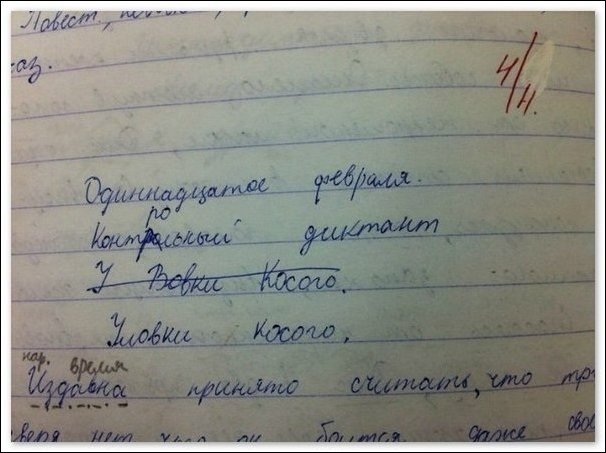 Повест.,
аз.
4/4.
Одиннадцатое февраля.
Контрольный диктант
У Вовки Косого.
Уловки косого.
нар. время
Издавна принято считать, что
зверя нет, он боится даже